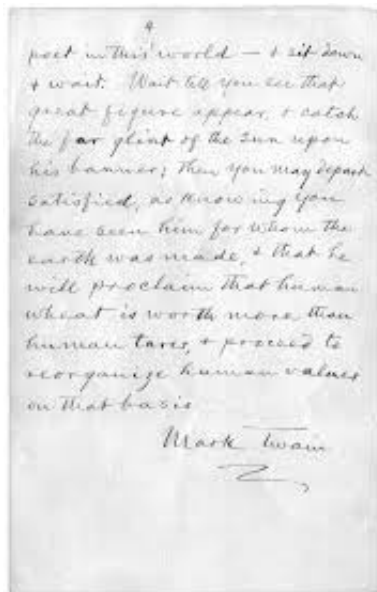 4
poet in this world — & sit down
& wait. Wait till you see that
great figure appear, & catch
the far glint of the sun upon
his banner; then you may depart
satisfied, as knowing you
have seen him for whom the
earth was made, & that he
will proclaim that human
wheat is worth more than
human tares, & proceed to
reorganize human values
on that basis
Mark Twain